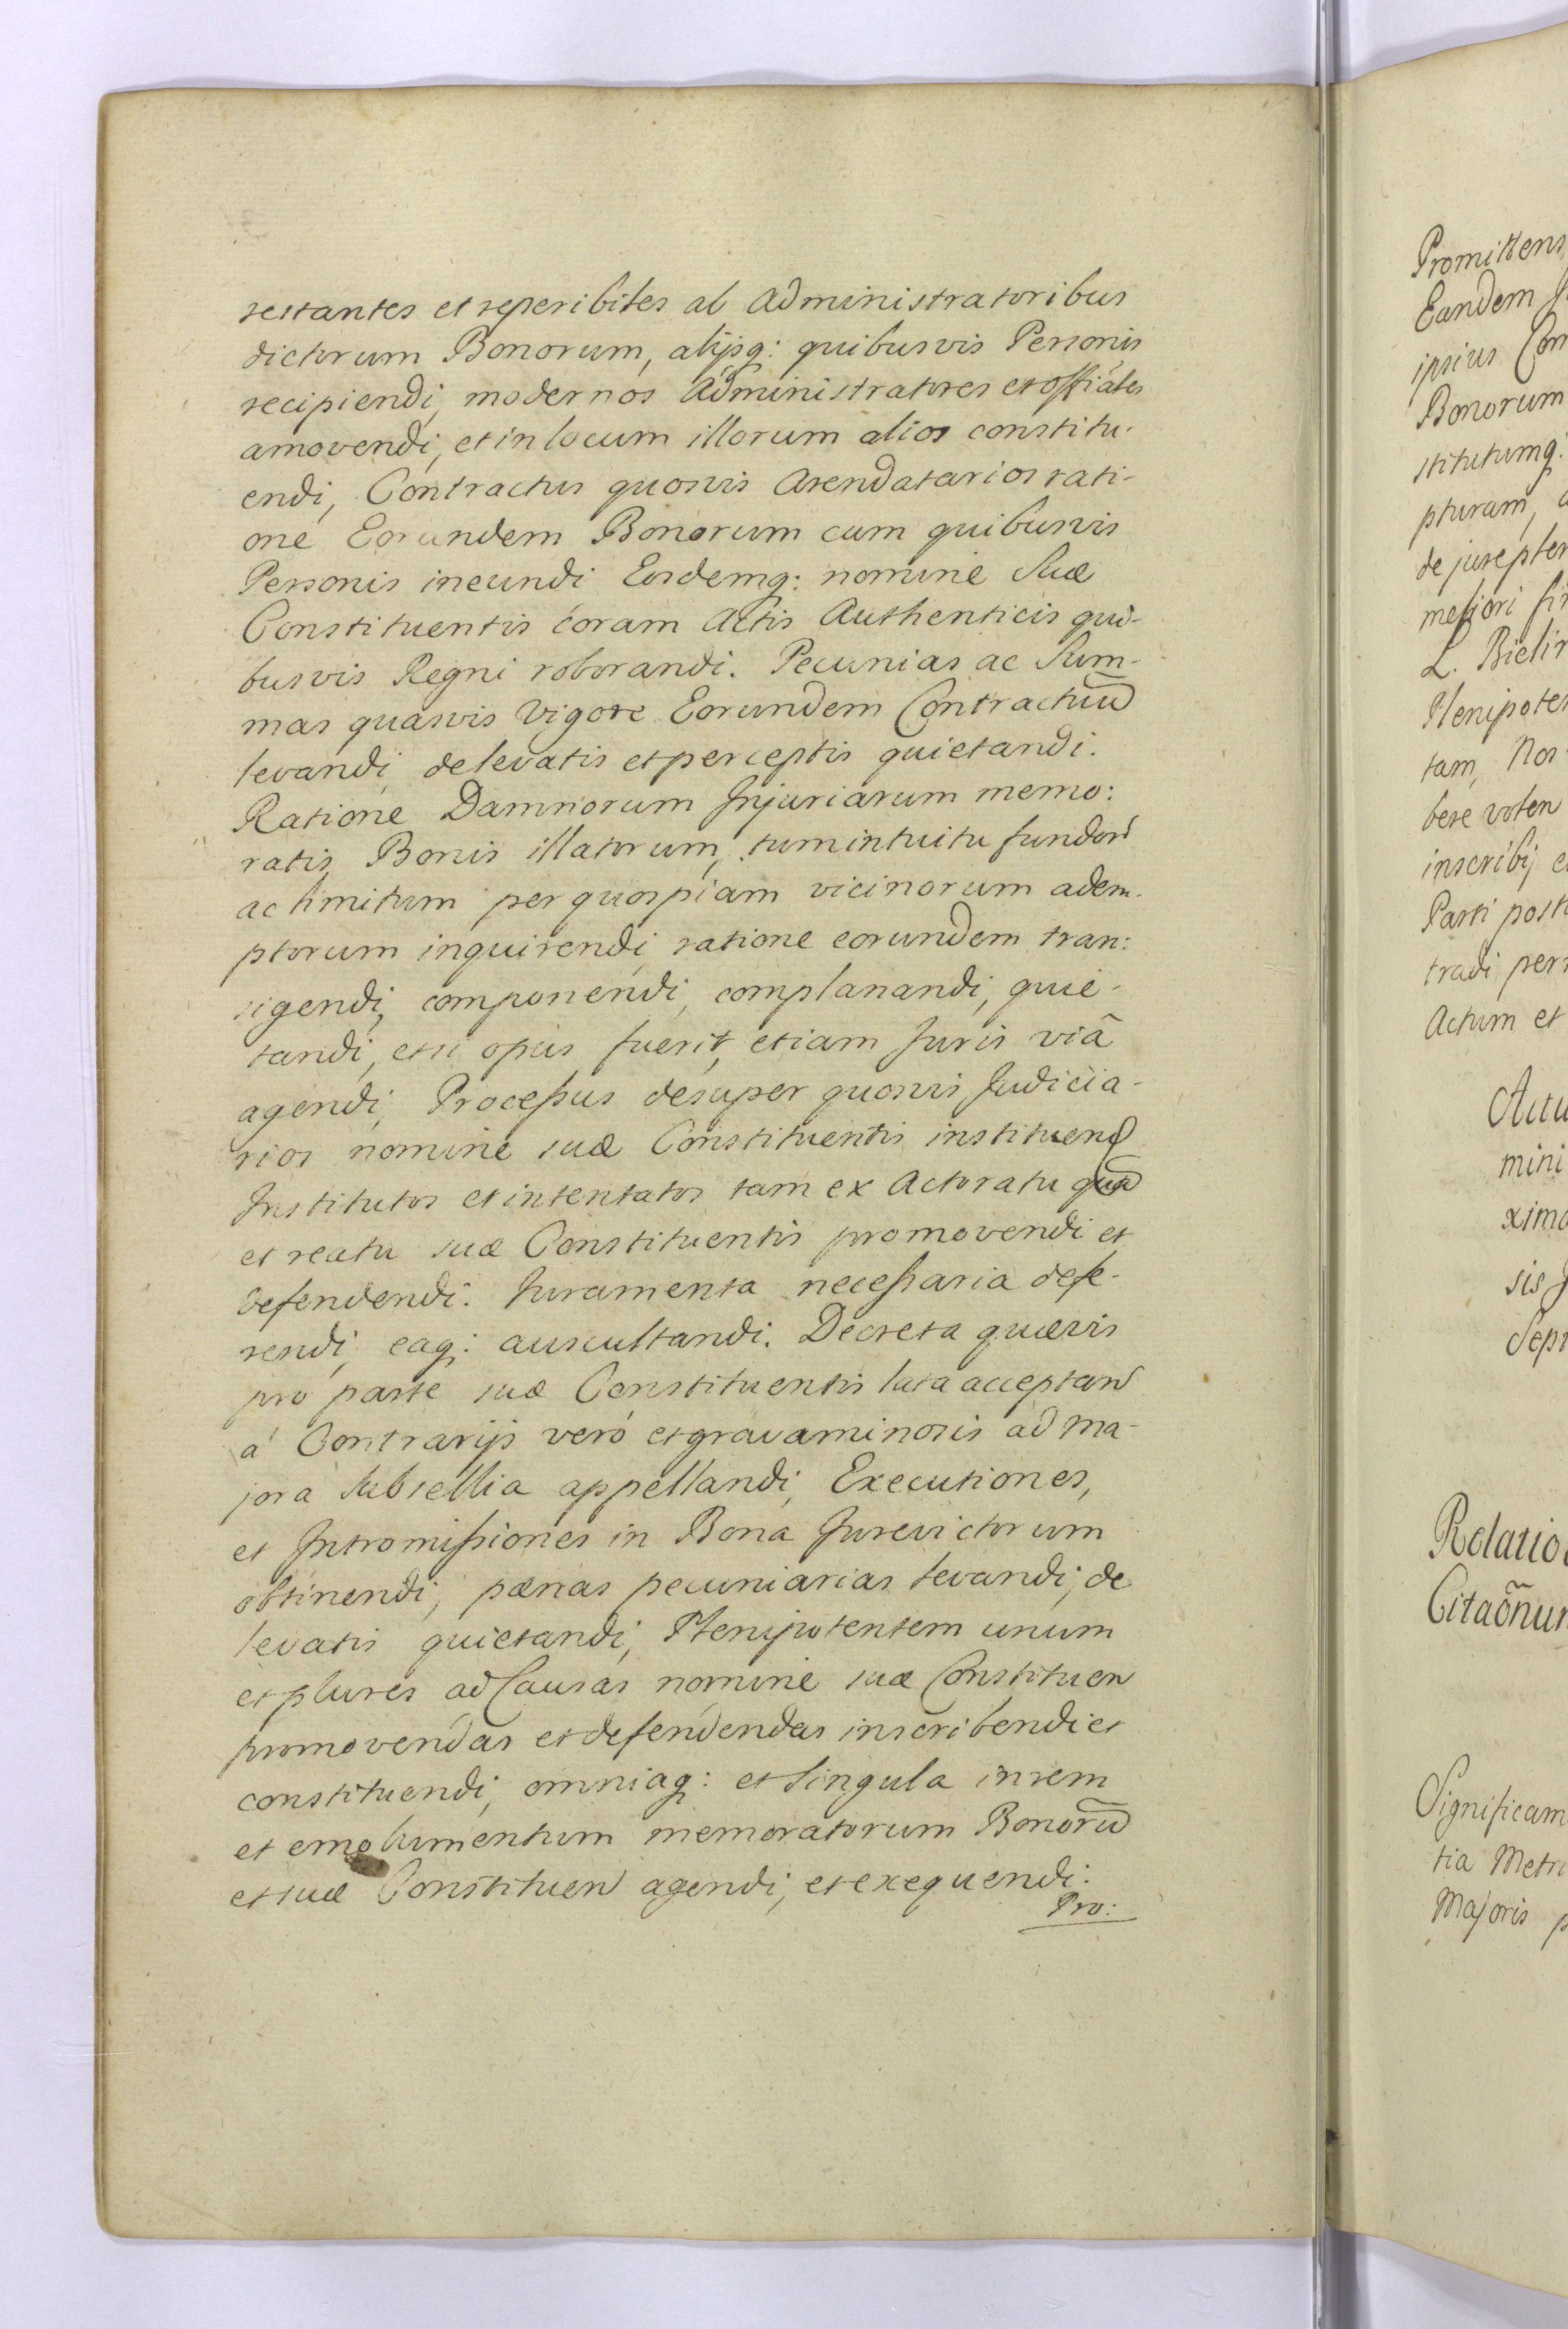 restantes et reperibiles ab Administratoribus
dictorum Bonorum, alijsq: quibusvis Personis
recipiendi, modernos Administratores et offiãles
amovendi, et in locum illorum alios constitu-
endi, Contractus quosvis Arendatarios rati-
one Eorundem Bonorum cum quibusvis
Personis ineundi Eosdemq: nomine Suæ
Constituentis coram Actis Authenticis qui-
busvis Regni roborandi. Pecunias ac Sum-
mas quasvis Vigore Eorundem Contractuũ
levandi, de levatis et perceptis quietandi.
Ratione Damnorum Injuriarum memo:
ratis Bonis illatorum, tum intuitu fundorũ
ac limitum per quospiam vicinorum adem-
ptorum inquirendi, ratione eorundem tran:
sigendi, componendi, complanandi, quie-
tandi, et si opus fuerit, etiam Juris viâ
agendi, Processus desuper quosvis Judicia-
rios nomine suæ Constituentis instituend
Institutos et intentatos tam ex Actoratu quã
et reatu suæ Constituentis promovendi et
defendendi. Juramenta necessaria defe-
rendi, eaq: auscultandi. Decreta quævis
pro parte suæ Constituentis lata acceptand
á Contrarijs veró et gravaminosis ad Ma-
jora Subsellia appellandi, Executiones,
et Intromissiones in Bona Jurevictorum
obtinendi, pænas pecuniarias levandi, de
levatis quietandi, Plenipotentem unum
et plures ad Causas nomine suæ Constituen
promovendas et defendendas inscribendi et
constituendi, omniaq: et Singula in rem
et emolumentum memoratorum Bonorũ
et suæ Constituen agendi, et exequendi.
Pro:
Promittens
Eandem
ipsius Con
Bonorum
stitutumq:
pturam,
de jure
meliori
L. Bielin
Plenipoten
tam, Nos
bere volen
inscribi, e
Parti post
tradi per
Actum et
Actu
mini
xima
sis
Sept
Relatio
Citaõnum
Significam
tia Metr
Majoris p